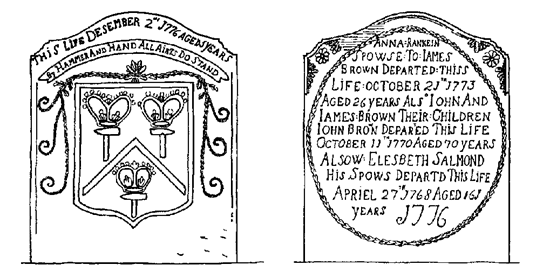 THIS LIFE DESEMBER 2ND 1776 AGED YEARS
BY HAMMER AND HAND ALL AIRTS DO STAND
ANNA·RANKEIN
SPOWSE·TO·IAMES
BROWN DEPARTED·THISS
LIFE·OCTOBER 23D 1773
AGED 26 YEARS ALSO IOHN AND
IAMES·BROWN THEIR·CHILDREN
IOHN BRO'N DEPAR'ED THIS LIFE
OCTOBER 11TH 1770 AGED 70 YEARS
ALSOW·ELESBETH SALMOND
HIS SPOWS DEPARTD THIS LIFE
APRIEL 27TH 1768 AGED
YEARS 1776